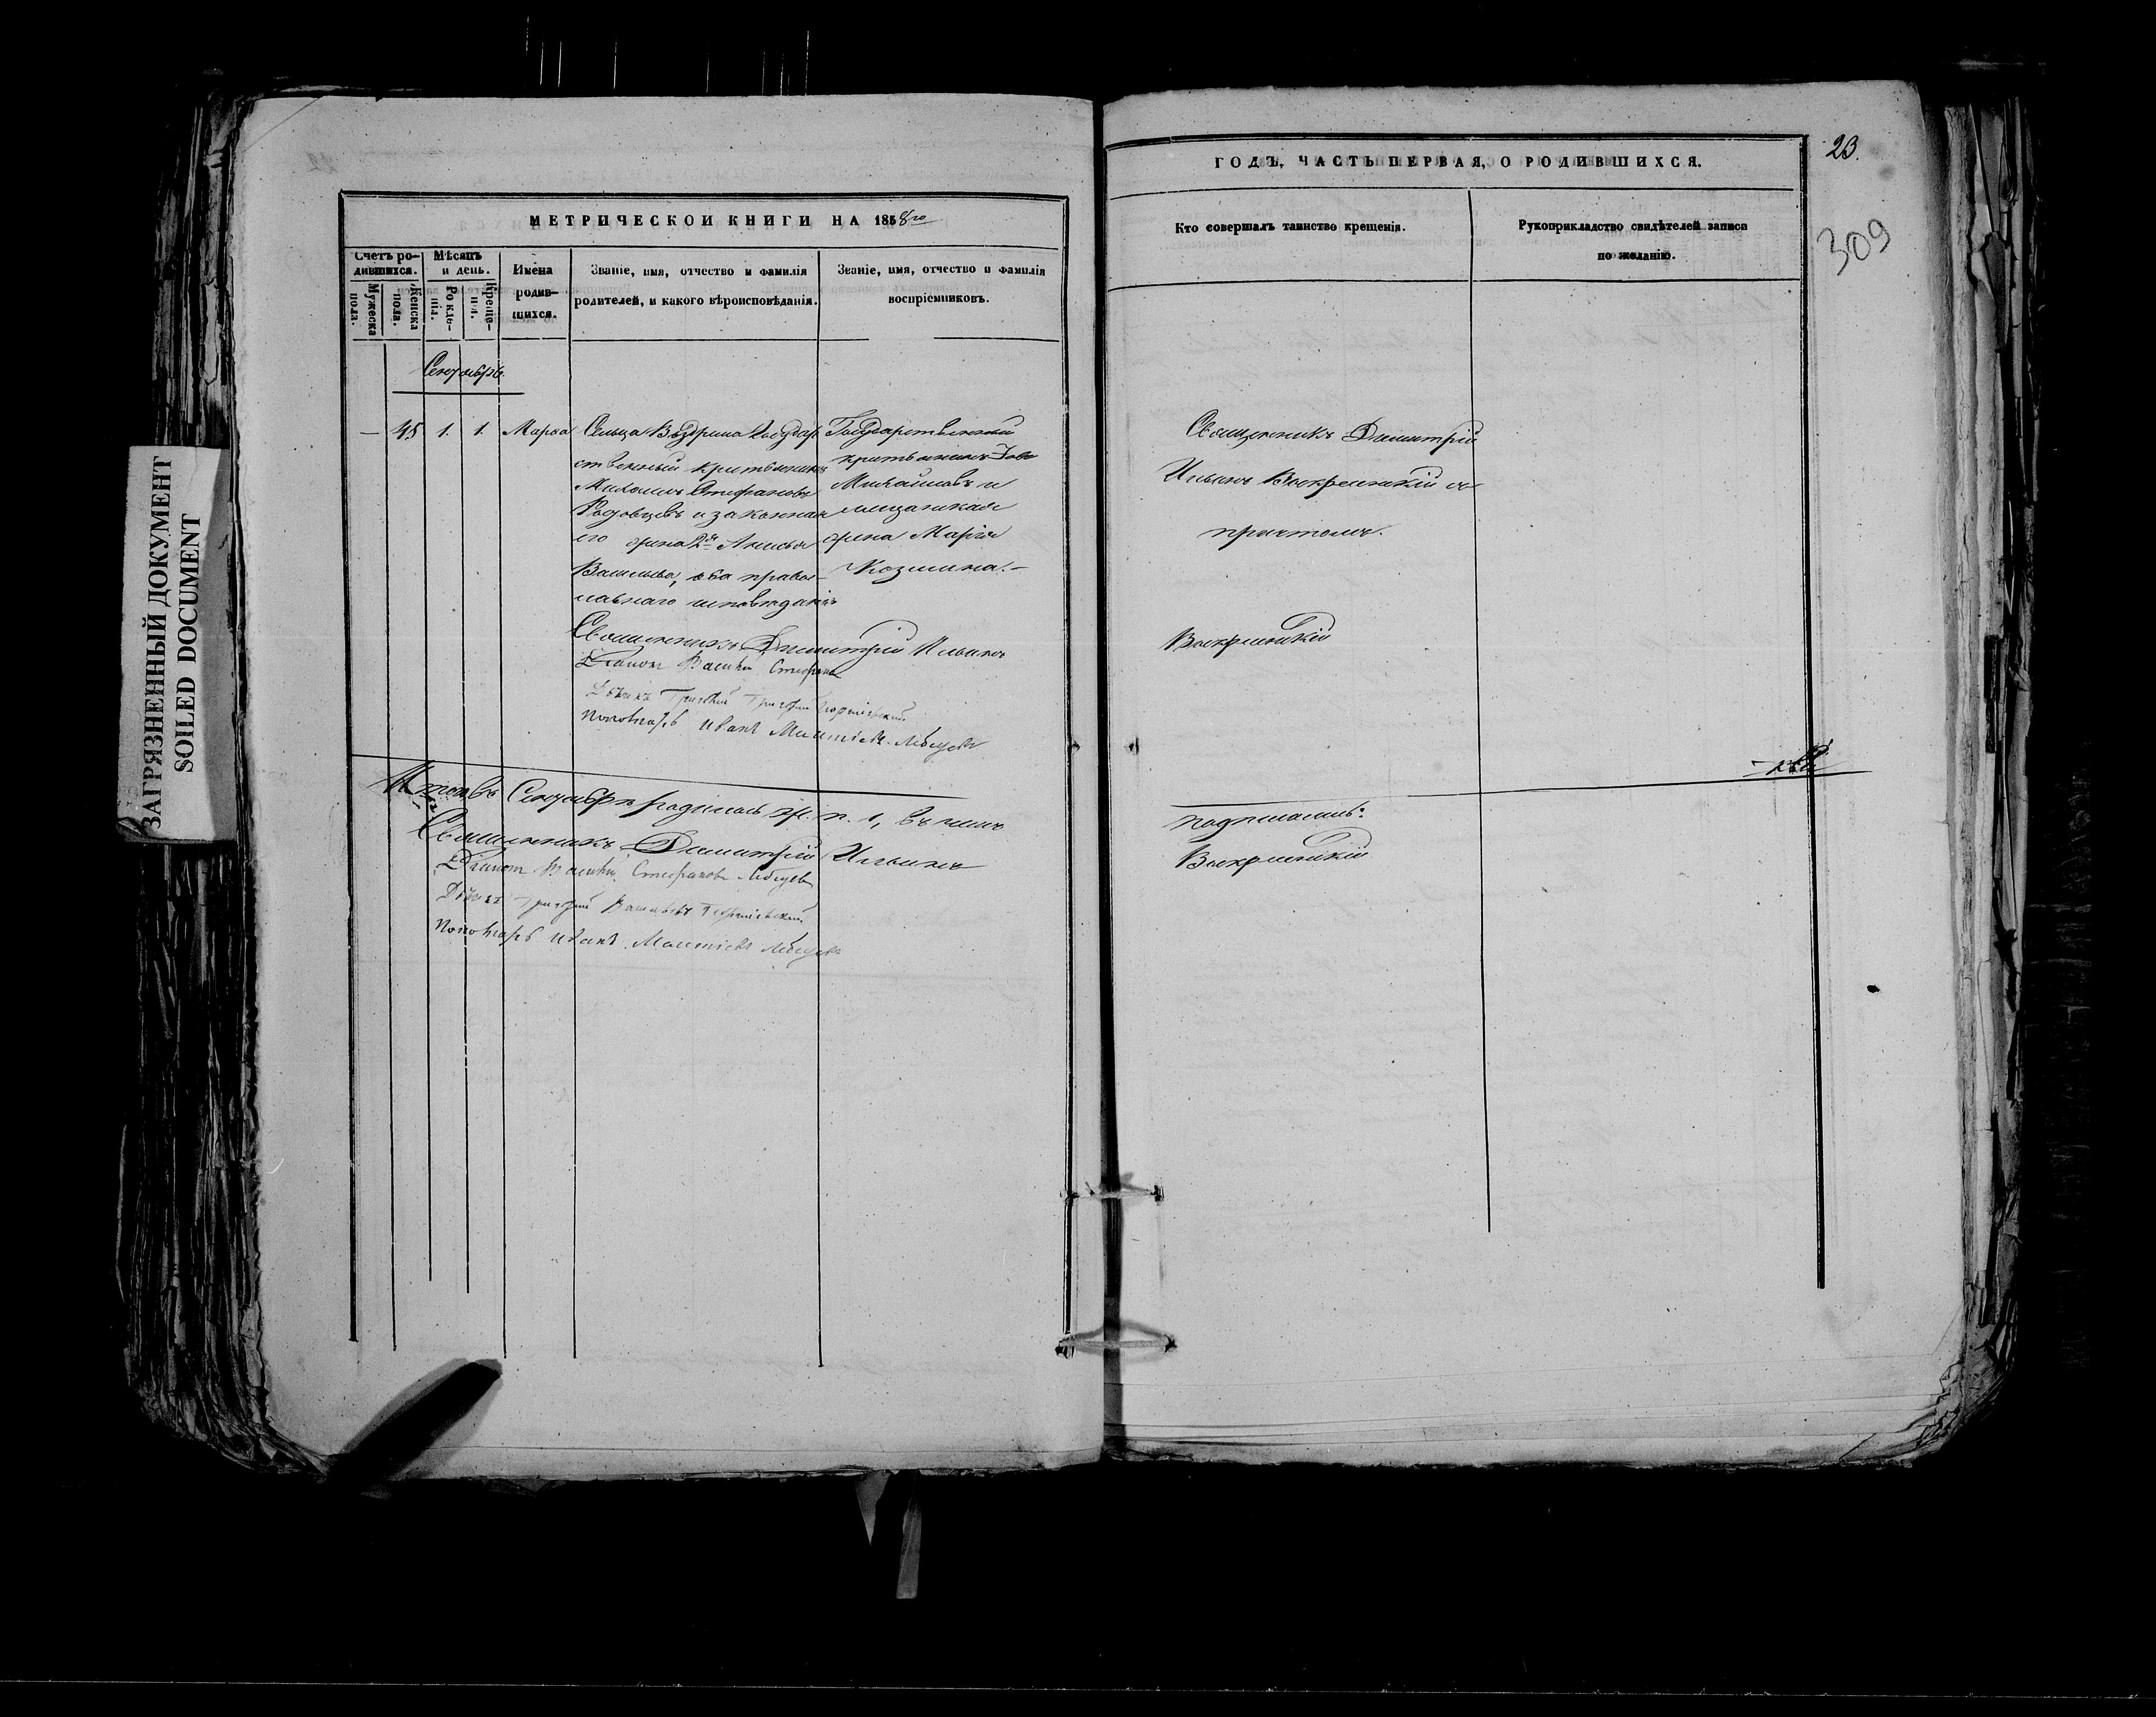 ЗАГРЯЗНЕННЫЙ ДОКУМЕНТ
SOILED DOCUMENT
МЕТРИЧЕСКОЙ КНИГИ НА 1858го
Счетъ родившихся.
Мужеска пола.
Женска пола.
Мѣсяцъ и день.
Рожденія.
Крещенія.
Имена родившихся.
Званіе, имя, отчество и фамилія
родителей, и какого вѣроисповѣданія.
Званіе, имя, отчество и фамилія
воспріемниковъ.
Сентябрь
— 45 1. 1. Марѳа
Сельца Государ
ственный крестьянинъ
Михаилъ Стефановъ
и законная
его жена 2я
Васильева, оба право-
славнаго исповѣданія
Государственный
крестьянинъ
Михаиловъ и
мещанская
жена Марія
Козмина.—
Священникъ Димитрій Ильинъ
Діаконъ Василій Стефановъ
Дьячекъ Григорій
Пономарь Иванъ
Итого въ Сентябрѣ родилось ж. п. 1, въ чемъ
Священникъ Димитрій Ильинъ
Діаконъ Василій Стефановъ
Дьячекъ Григорій Васильевъ Георгіевскій
Пономарь Иванъ
ГОДЪ, ЧАСТЬ ПЕРВАЯ, О РОДИВШИХСЯ.
23.
309
Кто совершалъ таинство крещенія.
Рукоприкладство свидѣтелей записи
по желанію.
Священникъ Димитрій
Ильинъ Воскресенскій съ
причтомъ.
Воскресенскій
подписались:
Воскресенскій